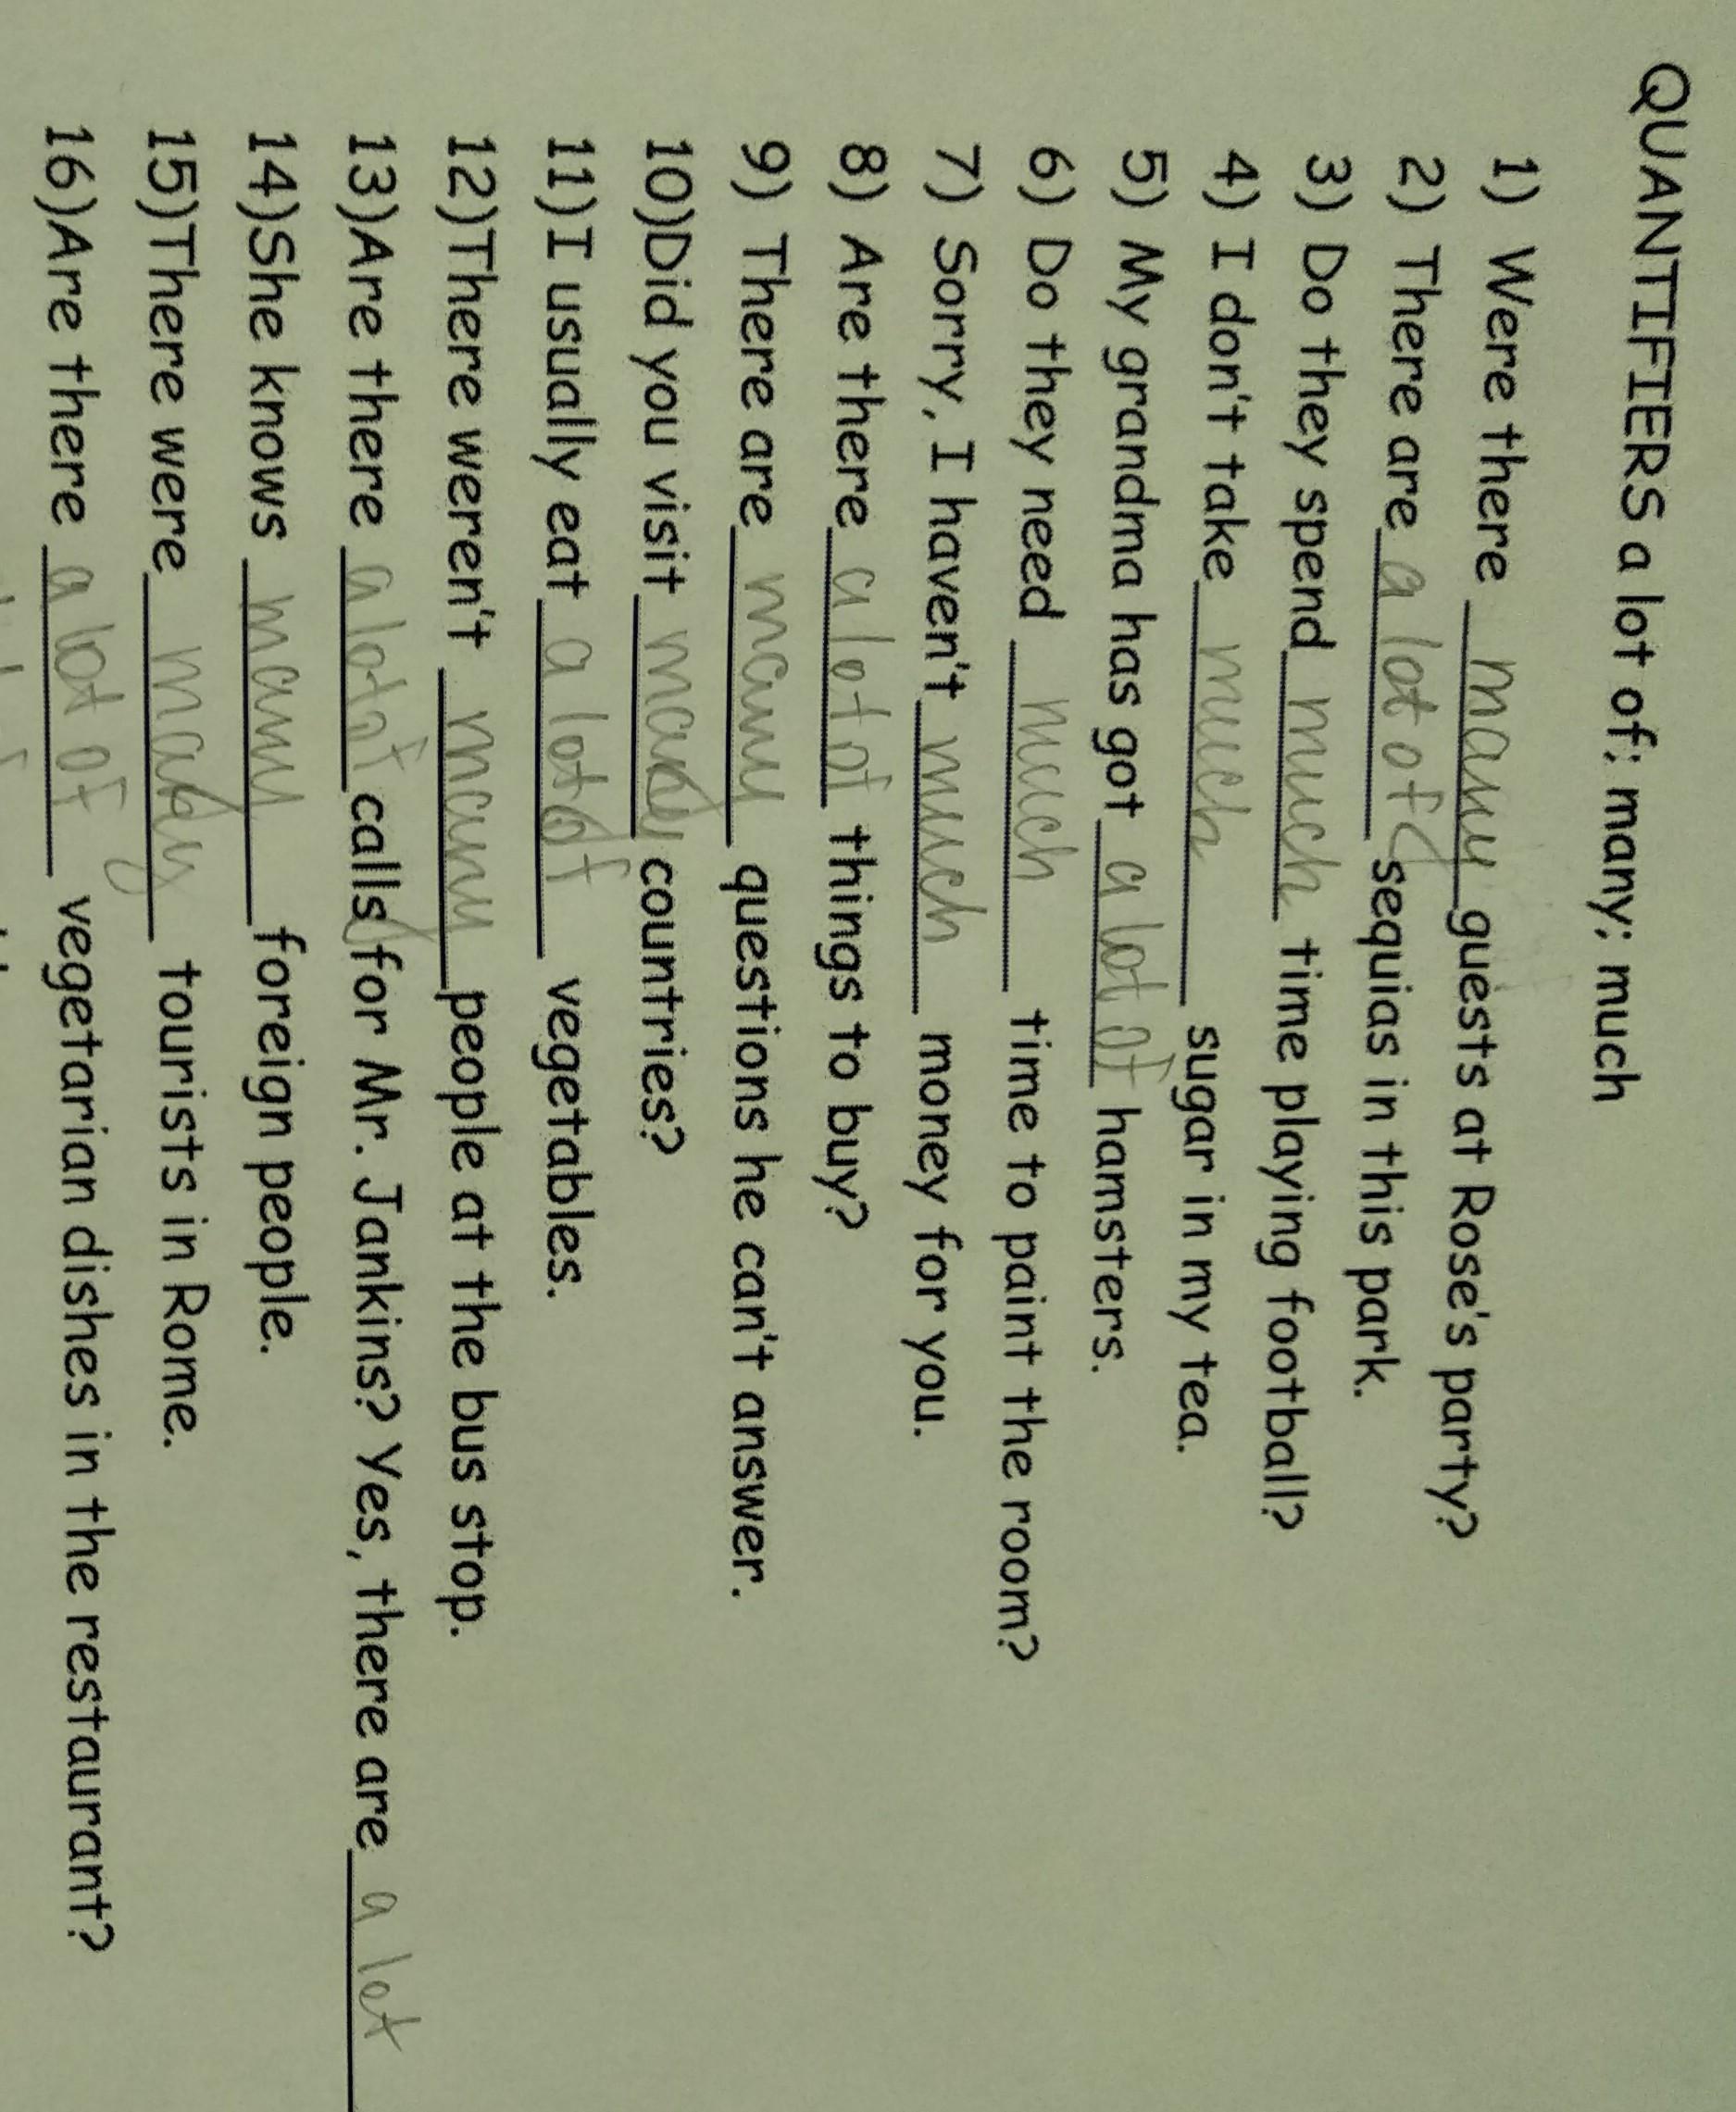 QUANTIFIERS a lot of; many; much
1) Were there many guests at Rose's party?
2) There are a lot of sequias in this park.
3) Do they spend much time playing football?
4) I don't take much sugar in my tea.
5) My grandma has got a lot of hamsters.
6) Do they need much time to paint the room?
7) Sorry, I haven't much money for you.
8) Are there a lot of things to buy?
9) There are many questions he can't answer.
10)Did you visit many countries?
11)I usually eat a lot of vegetables.
12)There weren't many people at the bus stop.
13)Are there a lot of calls for Mr. Jankins? Yes, there are a lot
14)She knows many foreign people.
15)There were many tourists in Rome.
16)Are there a lot of vegetarian dishes in the restaurant?